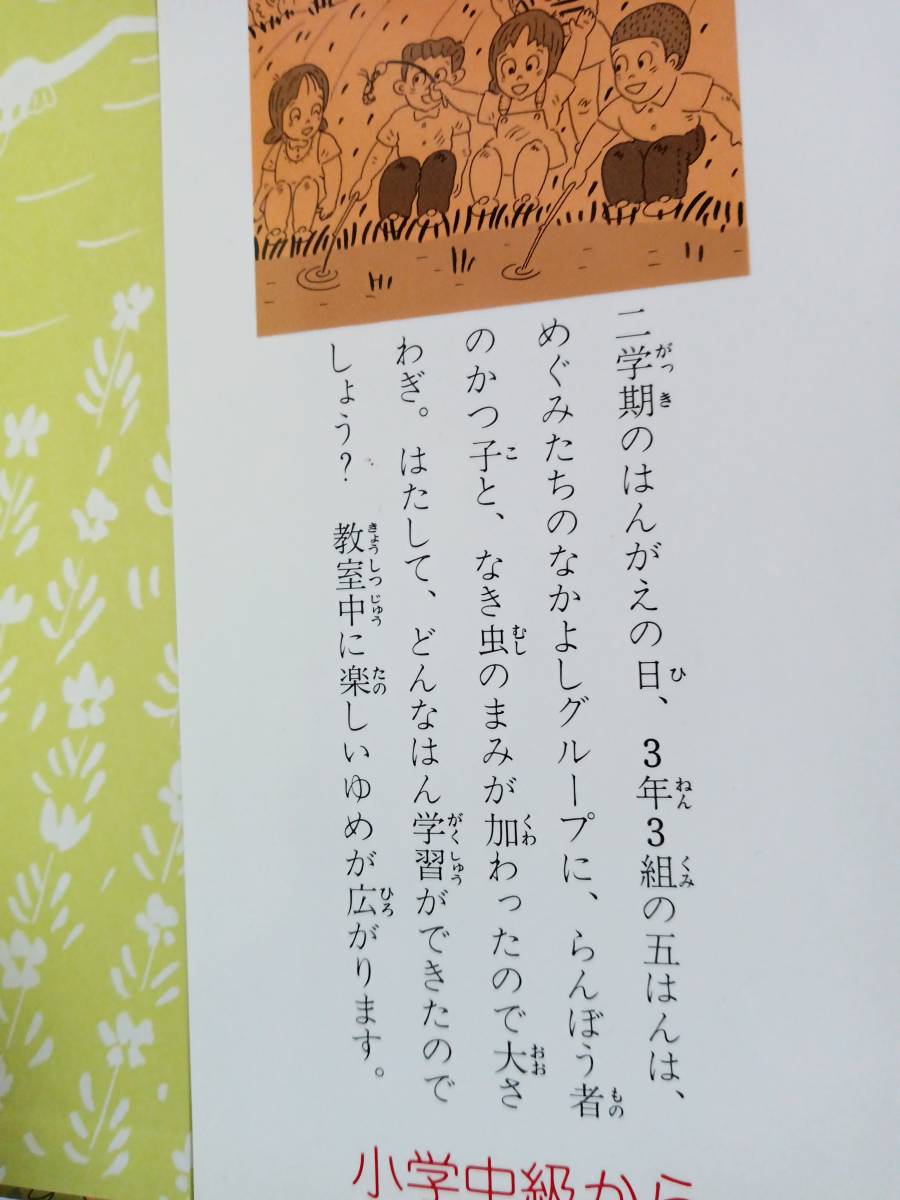 二学期のはんがえの日、3年3組の五はんは、
めぐみたちのなかよしグループに、らんぼう者
のかつ子と、なき虫のまみが加わったので大さ
わぎ。はたして、どんなはん学習ができたので
しょう？　教室中に楽しいゆめが広がります。
小学中級から